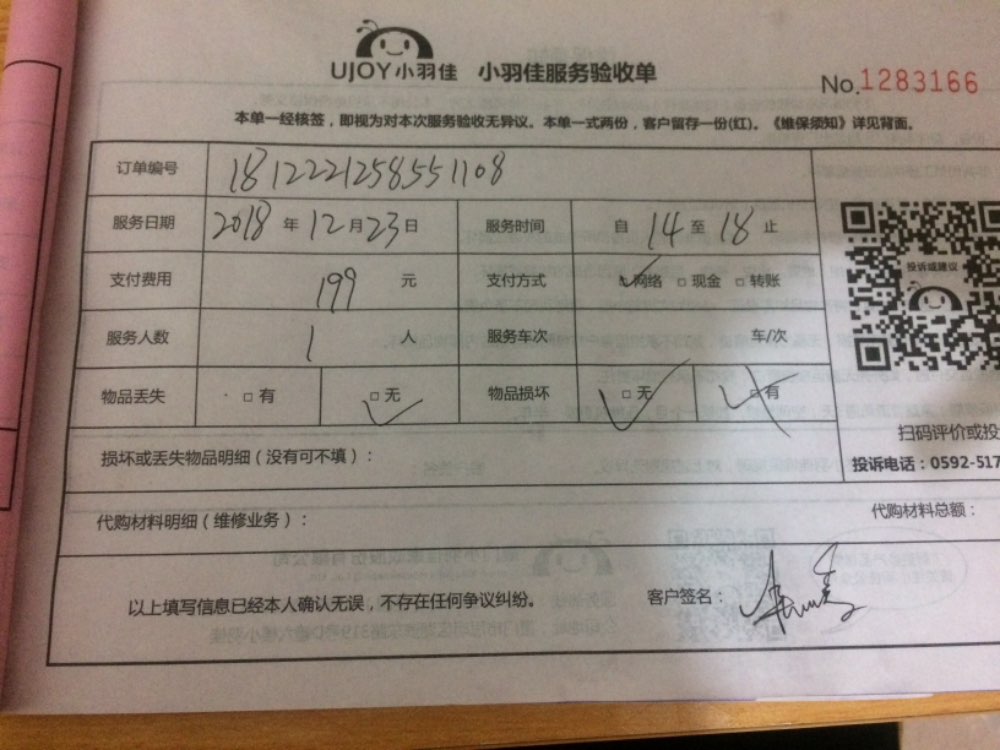 UJOY小羽佳 小羽佳服务验收单
No.1283166
本单一经核签，即视为对本次服务验收无异议。本单一式两份，客户留存一份(红)。《维保须知》详见背面。
订单编号 1812221258551108
服务日期 2018 年 12 月 23 日 服务时间 自 14 至 18 止
投诉或建议
支付费用 199 元 支付方式 ☑网络 □现金 □转账
服务人数 1 人 服务车次 车/次
物品丢失 □有 □无 物品损坏 □无 □有
扫码评价或投
损坏或丢失物品明细（没有可不填）：
投诉电话：0592-517
代购材料明细（维修业务）：
代购材料总额：
以上填写信息已经本人确认无误，不存在任何争议纠纷。 客户签名：